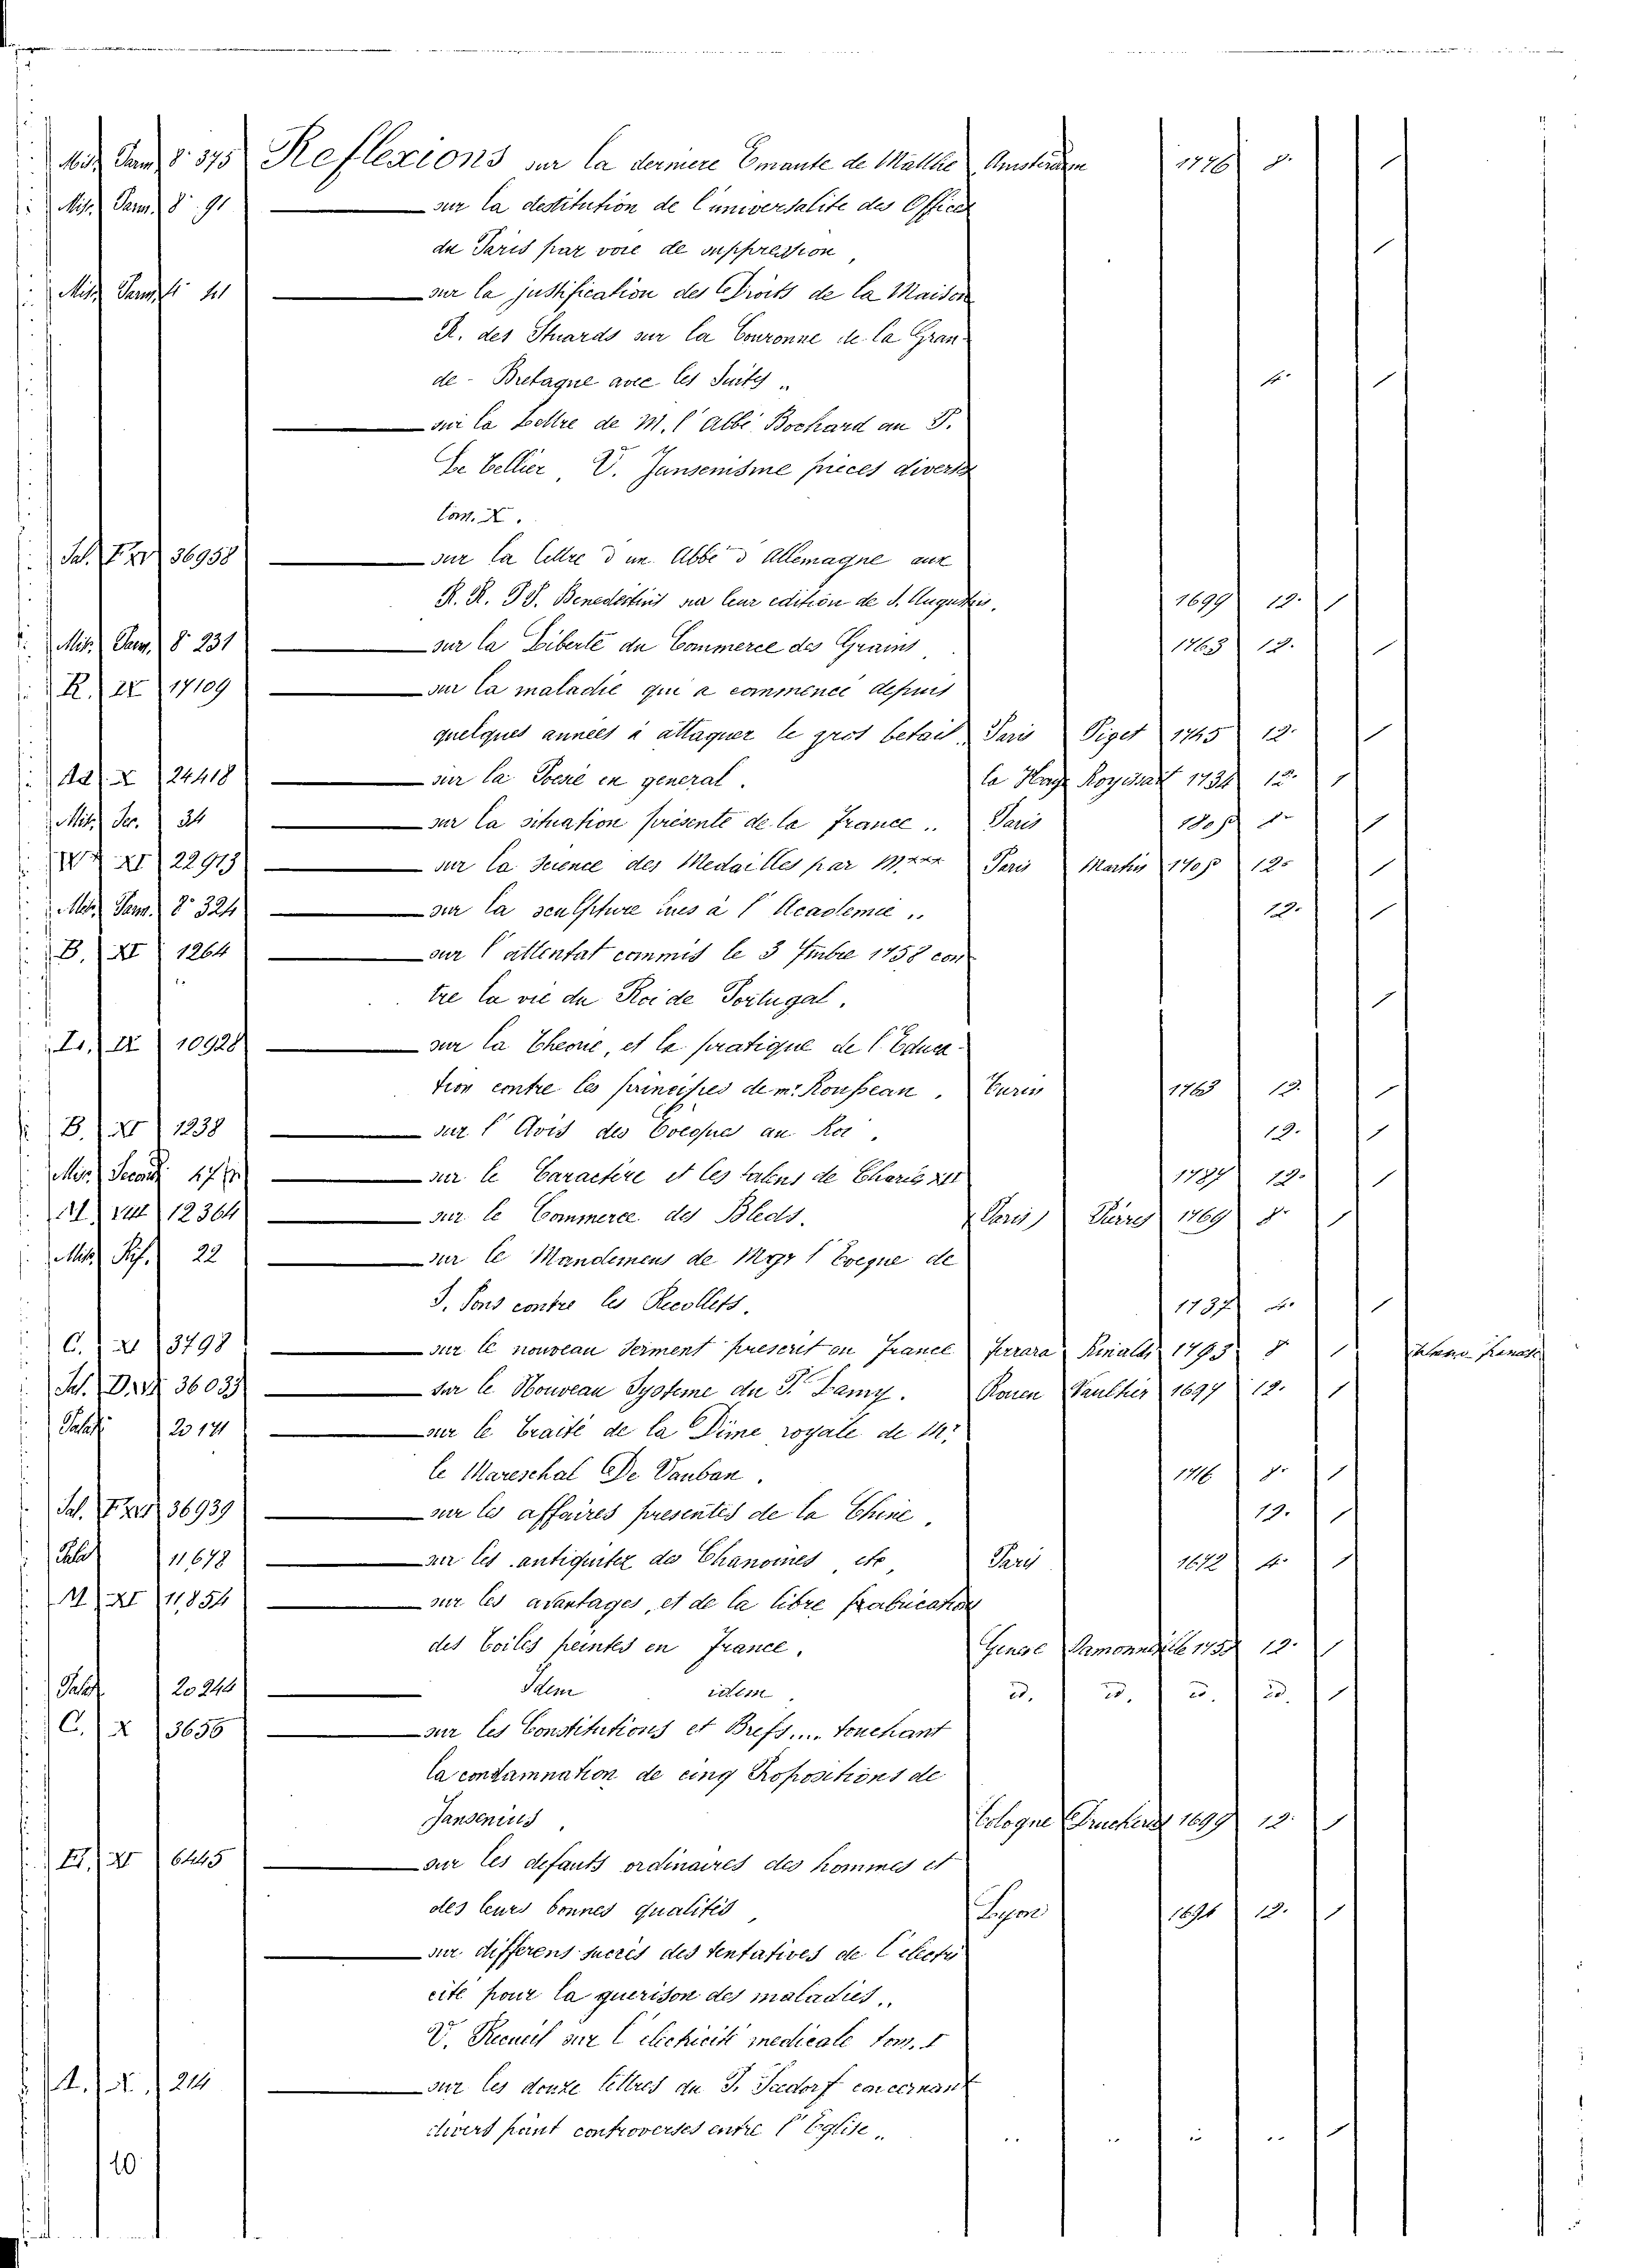 Mis. Pam. 8° 375 Reflexions sur la derniere Emeute de Malthe Amsterdam 1776 8° 1
Mis. Pam. 8° 91 — sur la destitution de l'universalité des Offices
de Paris par voie de suppression, 1
Mis. Pam. 4° 41 — sur la justification des Droits de la Maison
R. des Stuards sur la Couronne de la Gran-
de-Bretagne avec les Suites.. 4° 1
— sur la Lettre de M. l'Abbé Bochard au P.
Le Tellier, V. Jansenisme pieces diverses
tom. X.
Sal. 36958 — sur la lettre d'un Abbé d'Allemagne aux
R. R. P P. Benedictins sur leur edition de S. Augustin. 1699 12. 1
Mis. Pam. 8° 231 — sur la Liberté du Commerce des Grains, 1763 12. 1
R. IV 17109 — sur la maladie qui a commencé depuis
quelques années à attaquer le gros betail, Paris Piget 1745 12. 1
Ad. X 24418 — sur la Poesie en general. la Haye 1734 12. 1
Mis. 34 — sur la situation présente de la France.. Paris 8° 1
XI 22913 — sur la Science des Medailles par M*** Paris Martin 12° 1
Mis. Pam. 8° 324 — sur la sculpture lues à l'Academie.. 12. 1
B. XI 1264 — sur l'attentat commis le 3 7mbre 1758 con
tre la vie du Roi de Portugal. 1
IX 10928 — sur la Theorie, et la pratique de l'Educa-
tion contre les principes de mr. Rousseau. Turin 1763 12. 1
B. XI 1238 — sur l'Avis des Evêques au Roi, 12. 1
Mis. — sur le Caractère et les talens de Charles XII 1787 12. 1
M. VIII 12364 — sur le Commerce des Bleds. (Paris) Pierres 1769 8° 1
Mis. 22 — sur le Mandemens de Mgr l'Eveque de
S. Pons contre les Recollets. 1737 1
C. XI 3798 — sur le nouveau Serment prescrit en France Ferrara Rinaldi 1793 8° 1
Sal. 36033 — sur le Nouveau Systeme du P. Lamy. Rouen Vaultier 1697 12. 1
Palat 20171 — sur le Traité de la Dime royale de Mr.
le Mareschal De Vauban. 1716 8° 1
Sal. 36939 — sur les affaires presentes de la Chine, 12. 1
Palat 11678 — sur les antiquitez des Chanoines, etc, Paris 1672 4. 1
M. XI 11854 — sur les avantages, et de la libre frabrication
des Toiles peintes en France. Geneve Damonneville 1758 12. 1
Palat 20244 — Idem idem. id. id. id. id. 1
C. X 3656 — sur les Constitutions et Brefs.... touchant
la condamnation de cinq Propositions de
Jansenius, Cologne 1699 12. 1
H. XI 6445 — sur les defauts ordinaires des hommes et
des leurs bonnes qualités, Lyon 12. 1
— sur differens succès des tentatives de l'electri
cité pour la guerison des maladies..
V. Recueil sur l'electricité medicale tom. I
A. X. 214 — sur les douze lettres du J. Seedorf concernant
divers point controverses entre l'Eglise.. .. .. .. .. 1
10